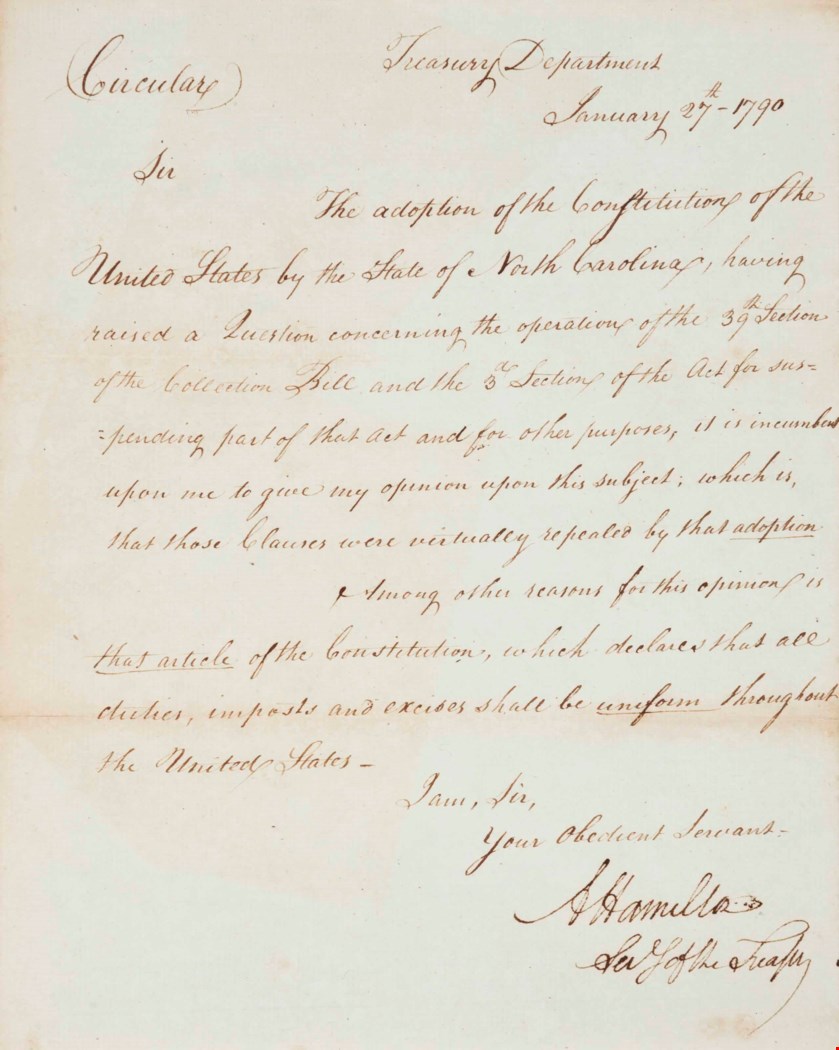 (Circular)
Treasury Department
January 27th - 1790
Sir
The adoption of the Constitution of the
United States by the State of North Carolina, having
raised a Question concerning the operation of the 39th Section
of the Collection Bill and the 3d Section of the Act for sus=
=pending part of that Act and for other purposes, it is incumbent
upon me to give my opinion upon this subject; which is,
that those Clauses were virtually repealed by that adoption
Among other reasons for this opinion is
that article of the Constitution, which declares that all
duties, imposts and excises shall be uniform throughout
the United States -
I am, Sir,
Your Obedient Servant -
A Hamilton
Secy of the Treasy